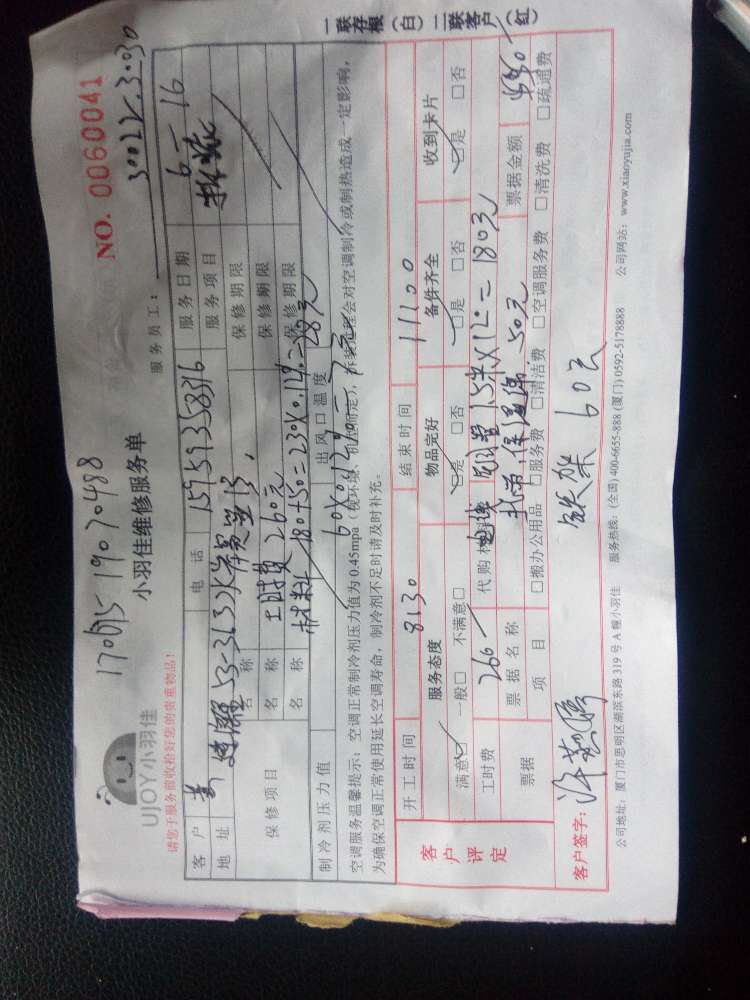 17061519070488
NO. 0060041
UJOY小羽佳
小羽佳维修服务单
请您于服务前收拾好您的贵重物品!
服务员工: 30022.3030
客户 姜 电话 15959358316 服务日期 6-16
地址 53-31 服务项目
保修项目 名称 保修期限
名称 工时费 260元 保修期限
名称 材料 180+50=230×0.12=28元 保修期限
制冷剂压力值 出风口温度
空调服务温馨提示: 空调正常制冷剂压力值为0.45mpa (视环境、机力而定), 拆装过程会对空调制冷或制热造成一定影响,
为确保空调正常使用延长空调寿命, 制冷剂不足时请及时补充。
客户评定
开工时间 8:30 结束时间 11:00
服务态度 物品完好 备件齐全 收到卡片
满意□ 一般□ 不满意□ □是 □否 □是 □否 □是 □否
工时费 260 代购材料 1.5米×120=180元
票据 票据名称 保温绵 50元 票据金额
项目 □搬办公用品 □服务费 □清洁费 □空调服务费 □清洗费 □疏通费
客户签字: 铁架 60元
公司地址: 厦门市思明区湖滨东路319号A幢小羽佳 服务热线: (全国) 400-6655-888 (厦门) 0592-5178888 公司网站: www.xiaoyujia.com
一联存根(白) 二联客户(红)